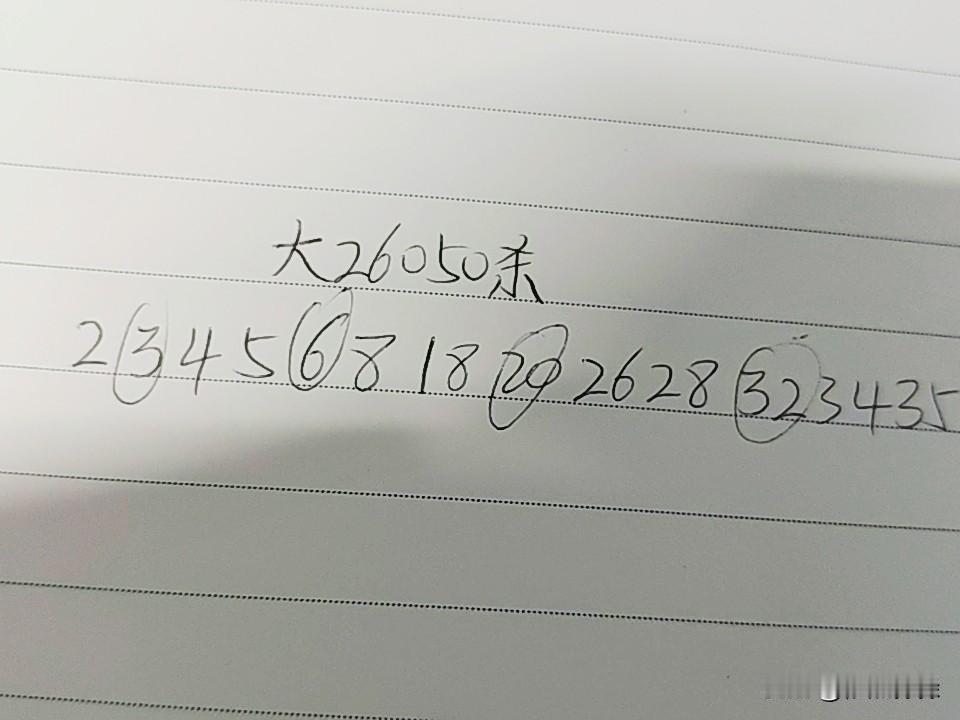 大26050杀
2 3 4 5 6 8 18 20 26 28 32 34 35